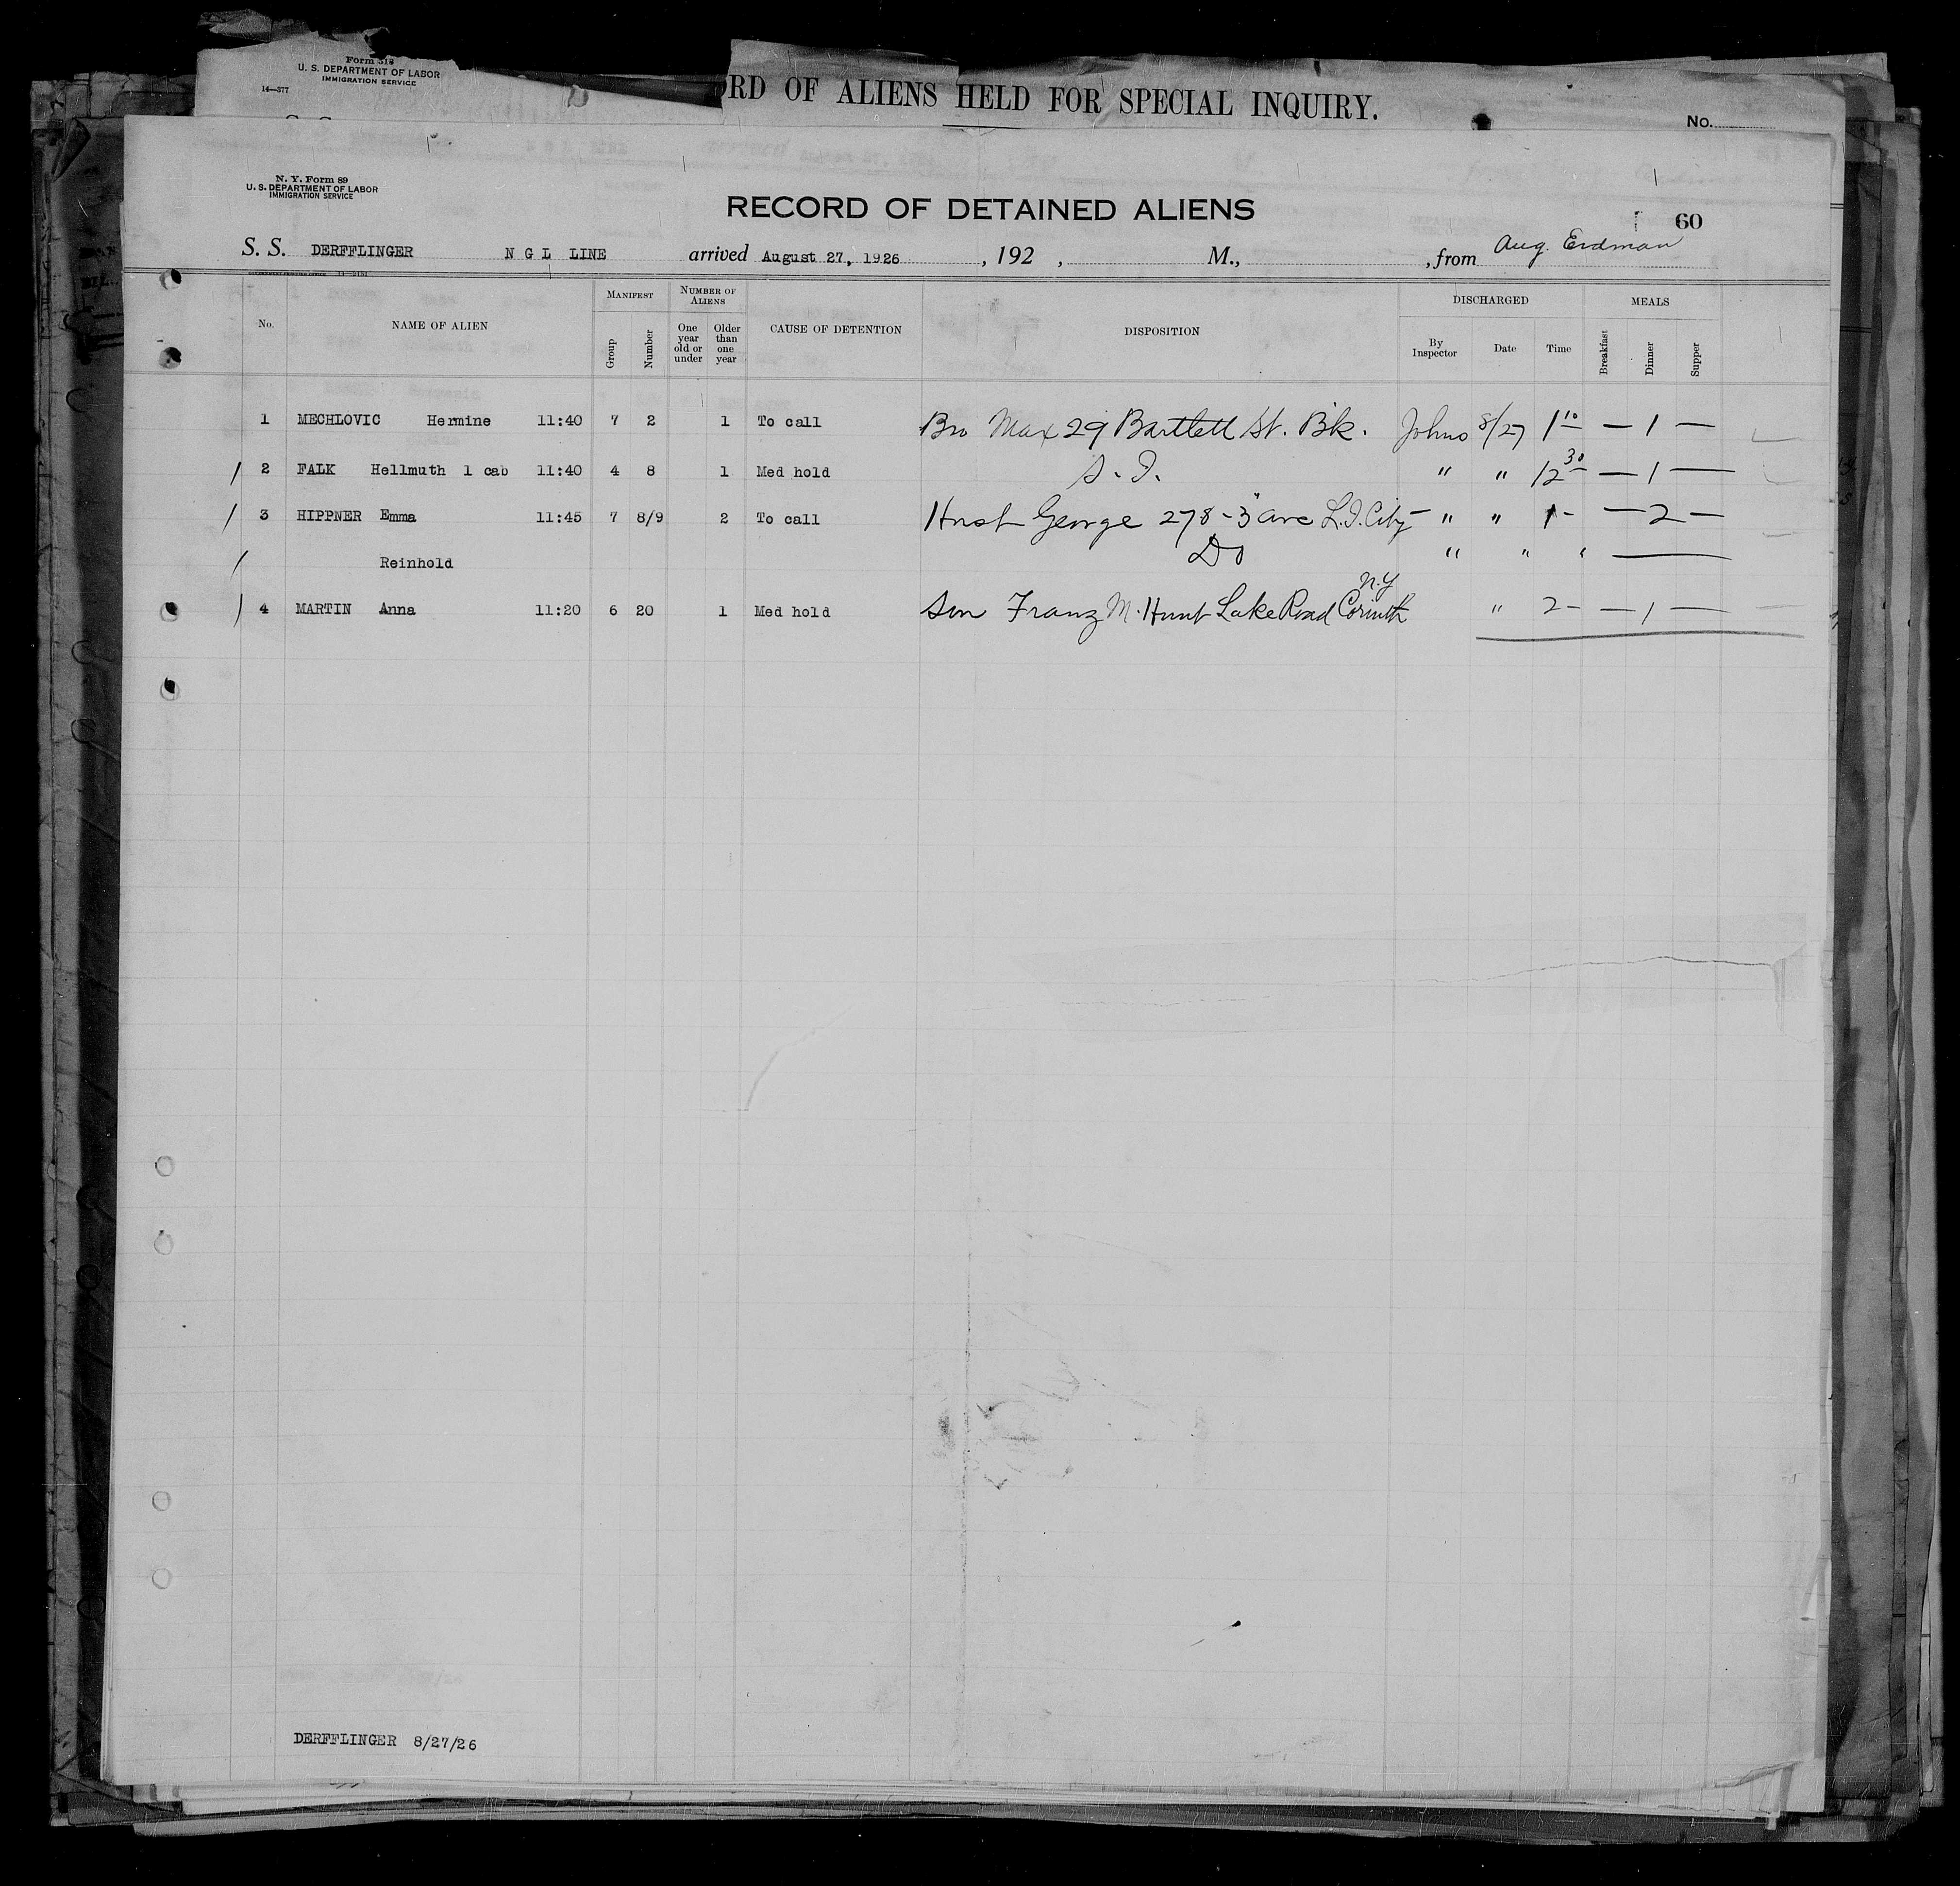 Form 318
U. S. DEPARTMENT OF LABOR
IMMIGRATION SERVICE
14—377
RD OF ALIENS HELD FOR SPECIAL INQUIRY.
No.
N. Y. Form 89
U. S. DEPARTMENT OF LABOR
IMMIGRATION SERVICE
RECORD OF DETAINED ALIENS
60
S. S. DERFFLINGER N G L LINE arrived August 27, 1926, 192 , M., , from Aug. Erdman
No. NAME OF ALIEN MANIFEST Group Number NUMBER OF ALIENS One year old or under Older than one year CAUSE OF DETENTION DISPOSITION DISCHARGED By Inspector Date Time MEALS Breakfast Dinner Supper
1 MECHLOVIC Hermine 11:40 7 2 1 To call Bro Max 29 Bartlett St. Bk. Johns 8/27 1 10 — 1 —
2 FALK Hellmuth 1 cab 11:40 4 8 1 Med hold S. I. " " 12 30 — 1 —
3 HIPPNER Emma 11:45 7 8/9 2 To call Husb George 278 - 3 ave L. I. City " " 1 - — 2 —
Reinhold Do " " " —
4 MARTIN Anna 11:20 6 20 1 Med hold Son Franz M. Hunt Lake Road Corinth N.Y " 2 - — 1 —
DERFFLINGER 8/27/26